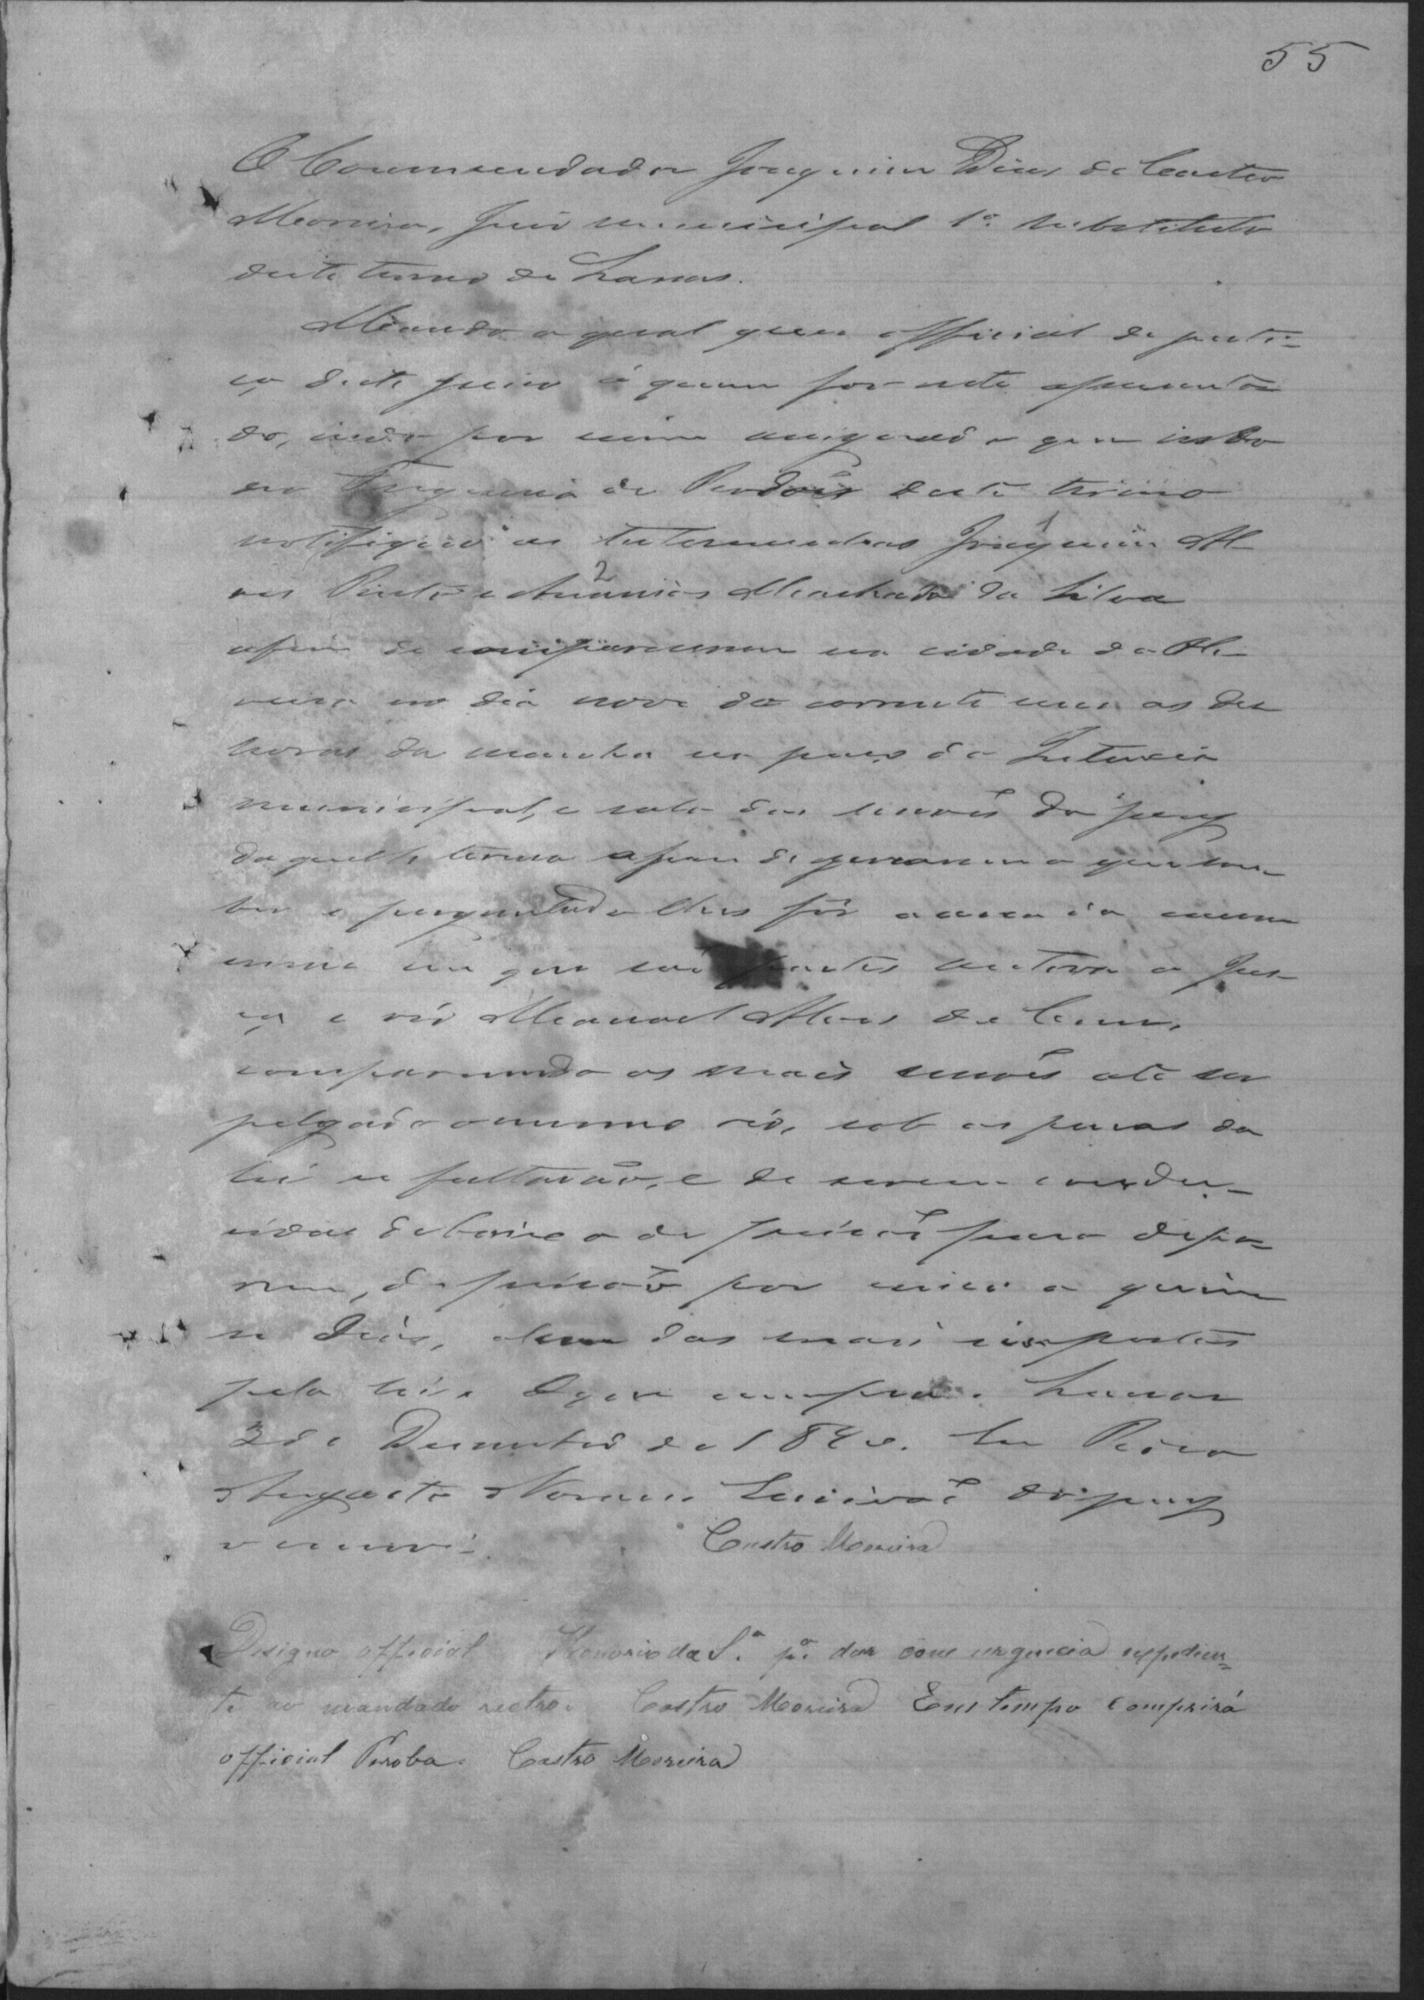 55
O Commendador Joaquim Dias de Castro
Moreira, Juis municipal 1º substituto
deste termo de Lavras.
Mando a qual quer official de justi-
ça deste juiso á quem for este apresenta
do, indo por mim assignado que indo
na freguesia de Perdões deste termo
notifique as testemunhas Joaquim Al-
ves Pinto e Ananias Machado da Silva
afim de comparecerem na cidade de Oli-
veira no dia nove do corrente mes as des
horas da manhã no paço da Intencia
municipal, e sala das sessões do jury
daquelle termo afim de jurarem o que sou-
ber e perguntado lhes fôr acerca do
crime em que são partes autora a Jus-
ça e réo Manoel Alves de
comparecendo as mais sessões até ser
julgado o mesmo réo, sob as penas da
lei se faltarão, e de serem condu-
sidas debaixo de prisão para depo-
rem, de prisão por cinco a quin
se dias, alem das mais impostas
pela lei. O que cumpra. Lavras
3 de Desembro de 1890. Eu Pedro
Augusto Escrivão do jury
o escrevi.
Castro Moreira
Designo official Honorio da S.ª pª. dar com urgencia expedien-
te ao mandado rectro. Castro Moreira Em tempo comprirá
official Peroba. Castro Moreira